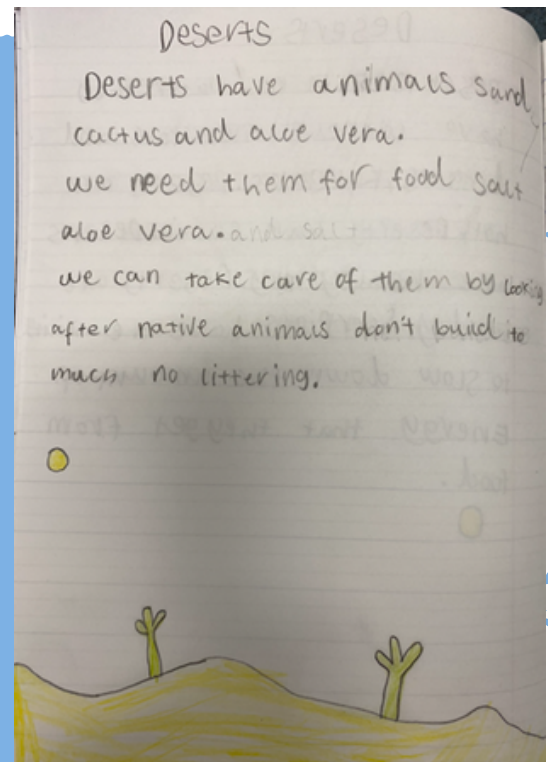 Deserts
Deserts have animals sand
cactus and aloe vera.
we need them for food salt
aloe vera.
we can take care of them by looking
after native animals don't build to
much no littering.